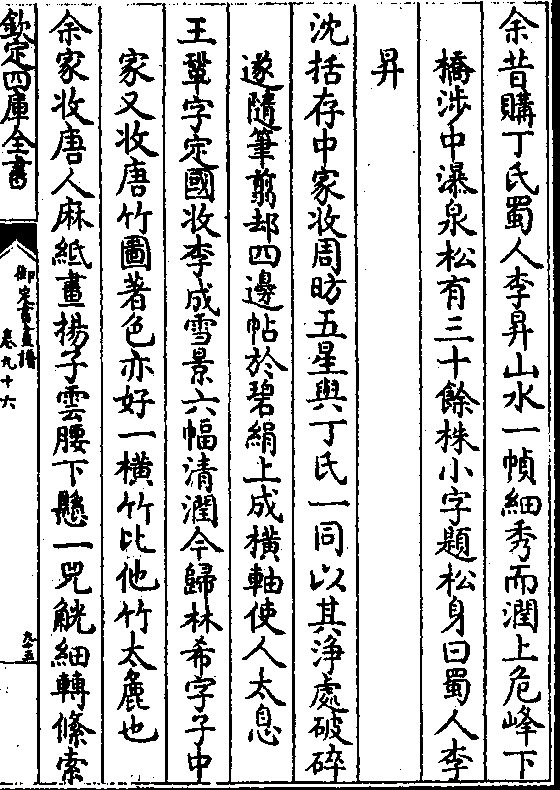 余昔購丁氏蜀人李昇山水一幀細秀而潤上危峰下
橋涉中瀑泉松有三十餘株小字題松身曰蜀人李
昇
沈括存中家收周昉五星與丁氏一同以其淨處破碎
遂隨筆剪却四邊帖於碧絹上成橫軸使人太息
王鞏字定國收李成雪景六幅清潤今歸林希字子中
家又收唐竹圖著色亦好一橫竹比他竹太麄也
余家收唐人麻紙畫揚子雲腰下懸一兕觥細轉絛索
欽定四庫全書
御定書畫譜
卷九十六